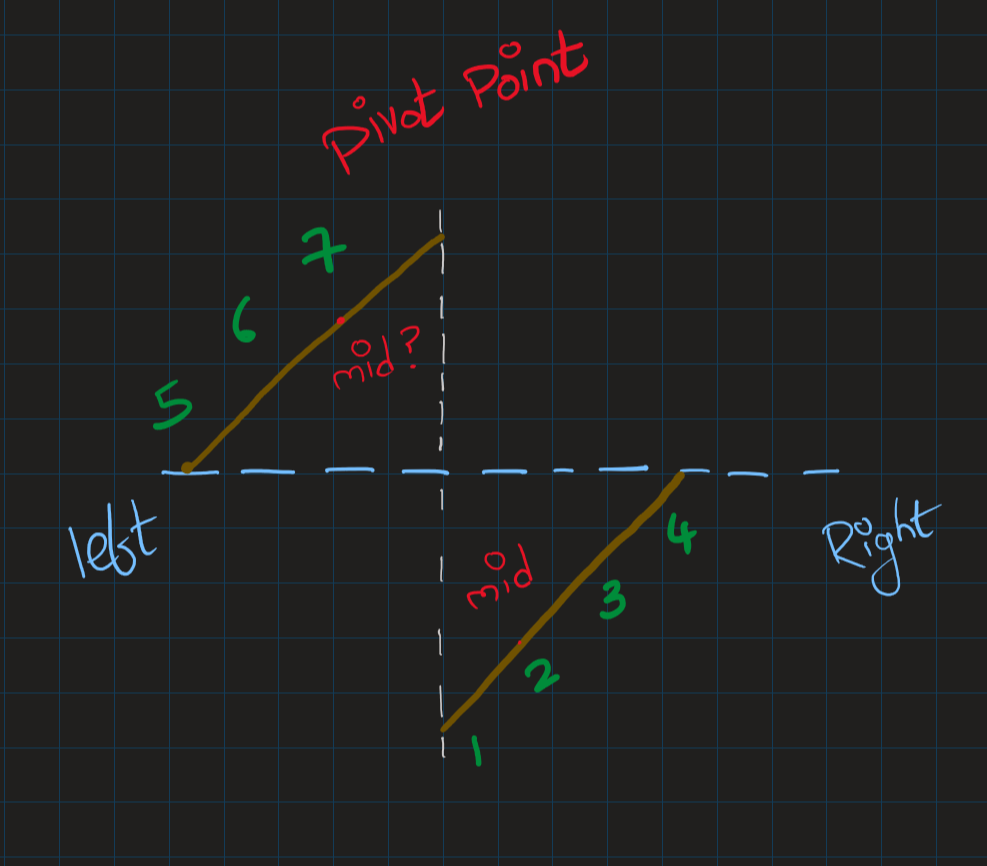 Pivot Point
7
6
mid?
5
left
Right
4
mid
3
2
1